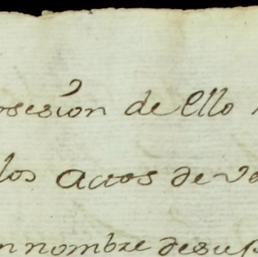 osesion de ello
los actos de
en nombre de su